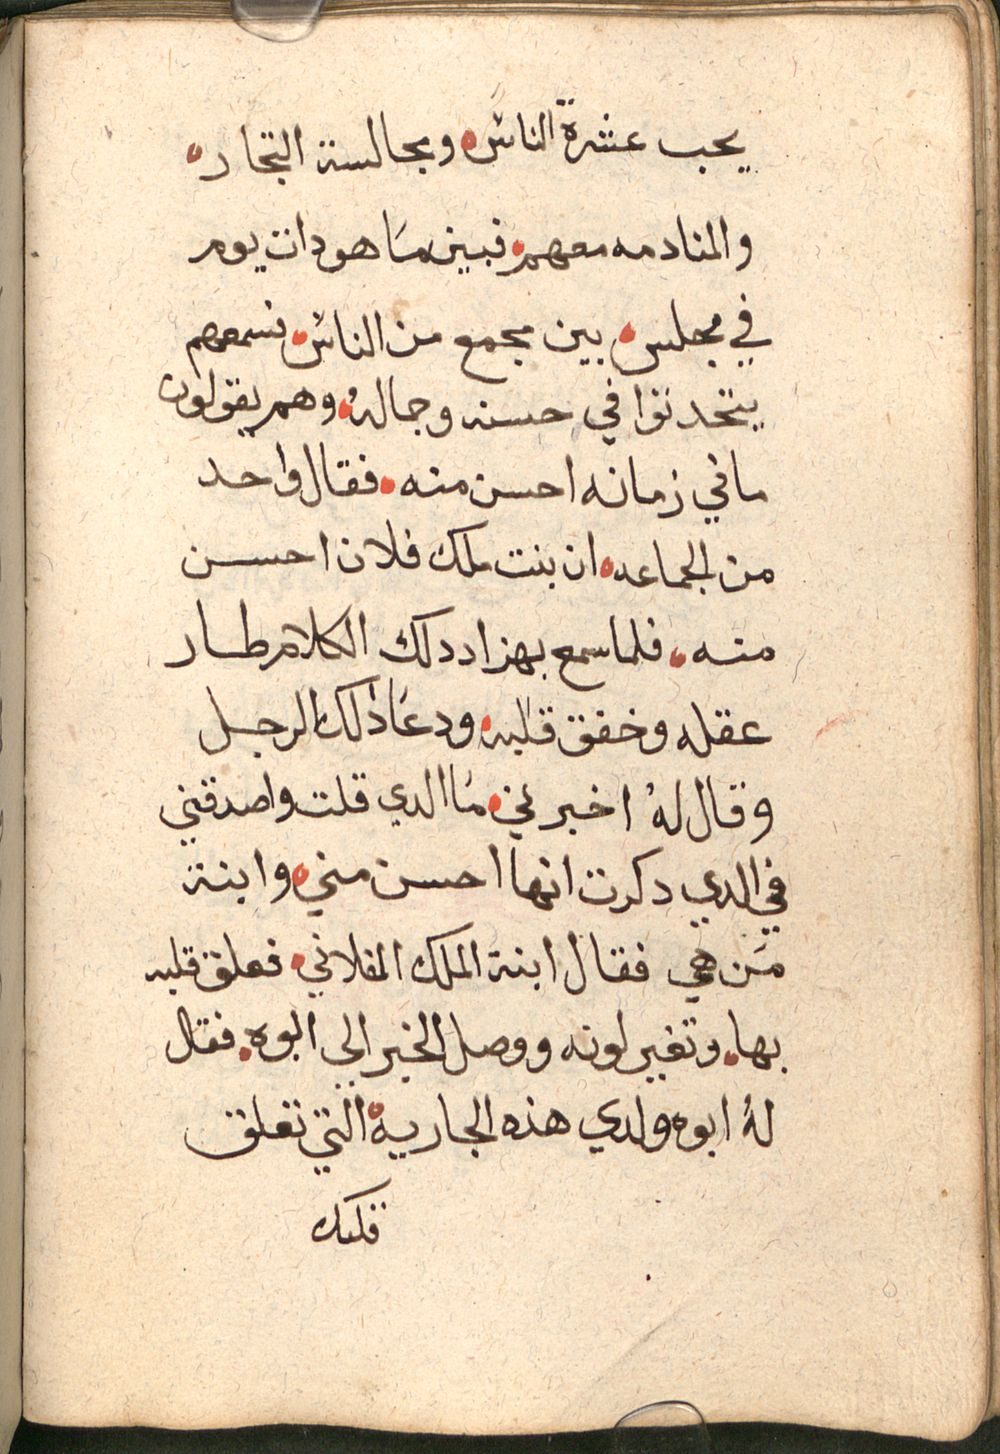 يحب عشرة الناس ومجالسة التجار
والمنادمه معهم فبين مَا هو دات يوم
في مجلس بين مجمع من الناس فسمعهم
يتحدثوا في حسنه وجماله وهم يقولون
ما في زمانه احسن منه فقال واحد
من الجماعه ان بنت ملك فلان احسن
منه فلما سمع بهزاد دلك الكلام طار
عقله وخفق قلبه ودعَا ذلك الرجل
وقال لهُ اخبرني مَا الدي قلت واصدقني
في الدي دكرت انها احسن مني وابنة
مَن هي فقال ابنة الملك الفلاني فعلق قلبه
بها وتغير لونه ووصل الخبر الى ابوه فقال
لهُ ابوه ولدي هذه الجارية التي تعلق
قلبك